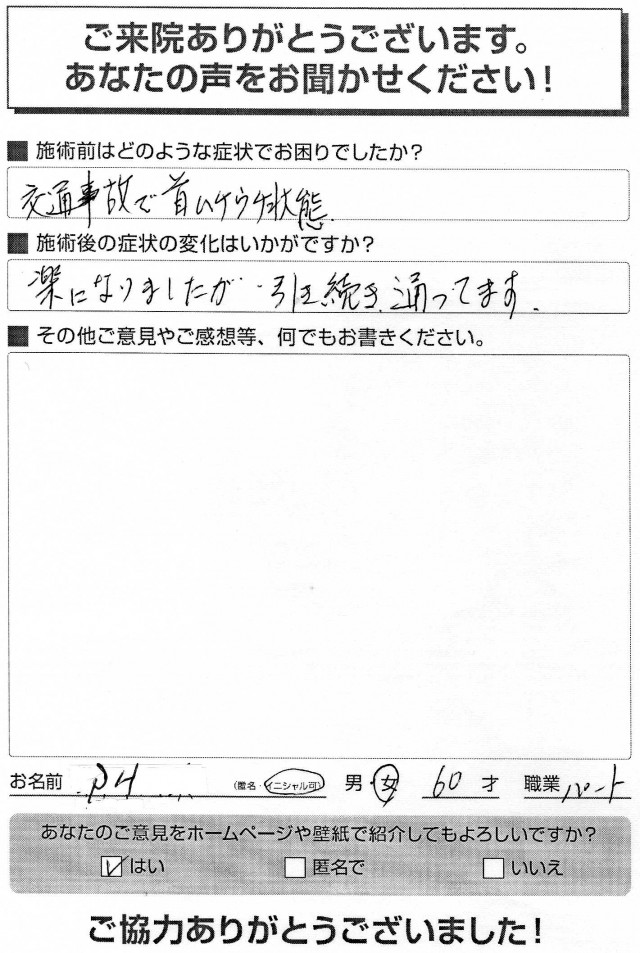 ご来院ありがとうございます。
あなたの声をお聞かせください！
■ 施術前はどのような症状でお困りでしたか？
交通事故で首ムチウチ状態.
■ 施術後の症状の変化はいかがですか？
楽になりましたが 引き続き、通ってます.
■ その他ご意見やご感想等、何でもお書きください。
お名前 (匿名・イニシャル可) 男・女 60 才 職業 パート
あなたのご意見をホームページや壁紙で紹介してもよろしいですか？
☑はい □匿名で □いいえ
ご協力ありがとうございました！